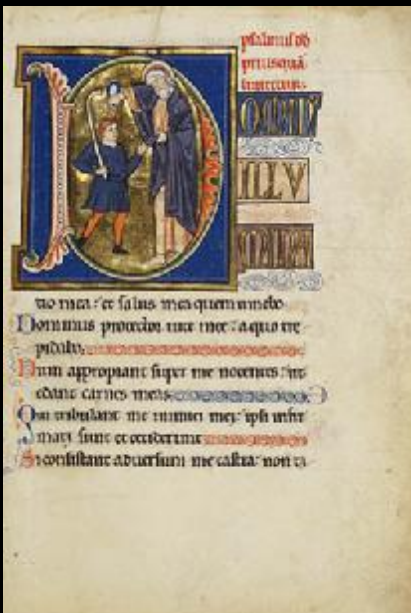 psalmus dd
priusquā
liniretur.
D
OMIN'
ILLV
MINA
tio mea: et salus mea quem timebo
Dominus protector uite mee: a quo tre
pidabo.
Dum appropiant super me nocentes: ut
edant carnes meas.
Qui tribulant me inimici mei: ipsi infir
mati sunt et ceciderunt
Si consistant aduersum me castra: non ti